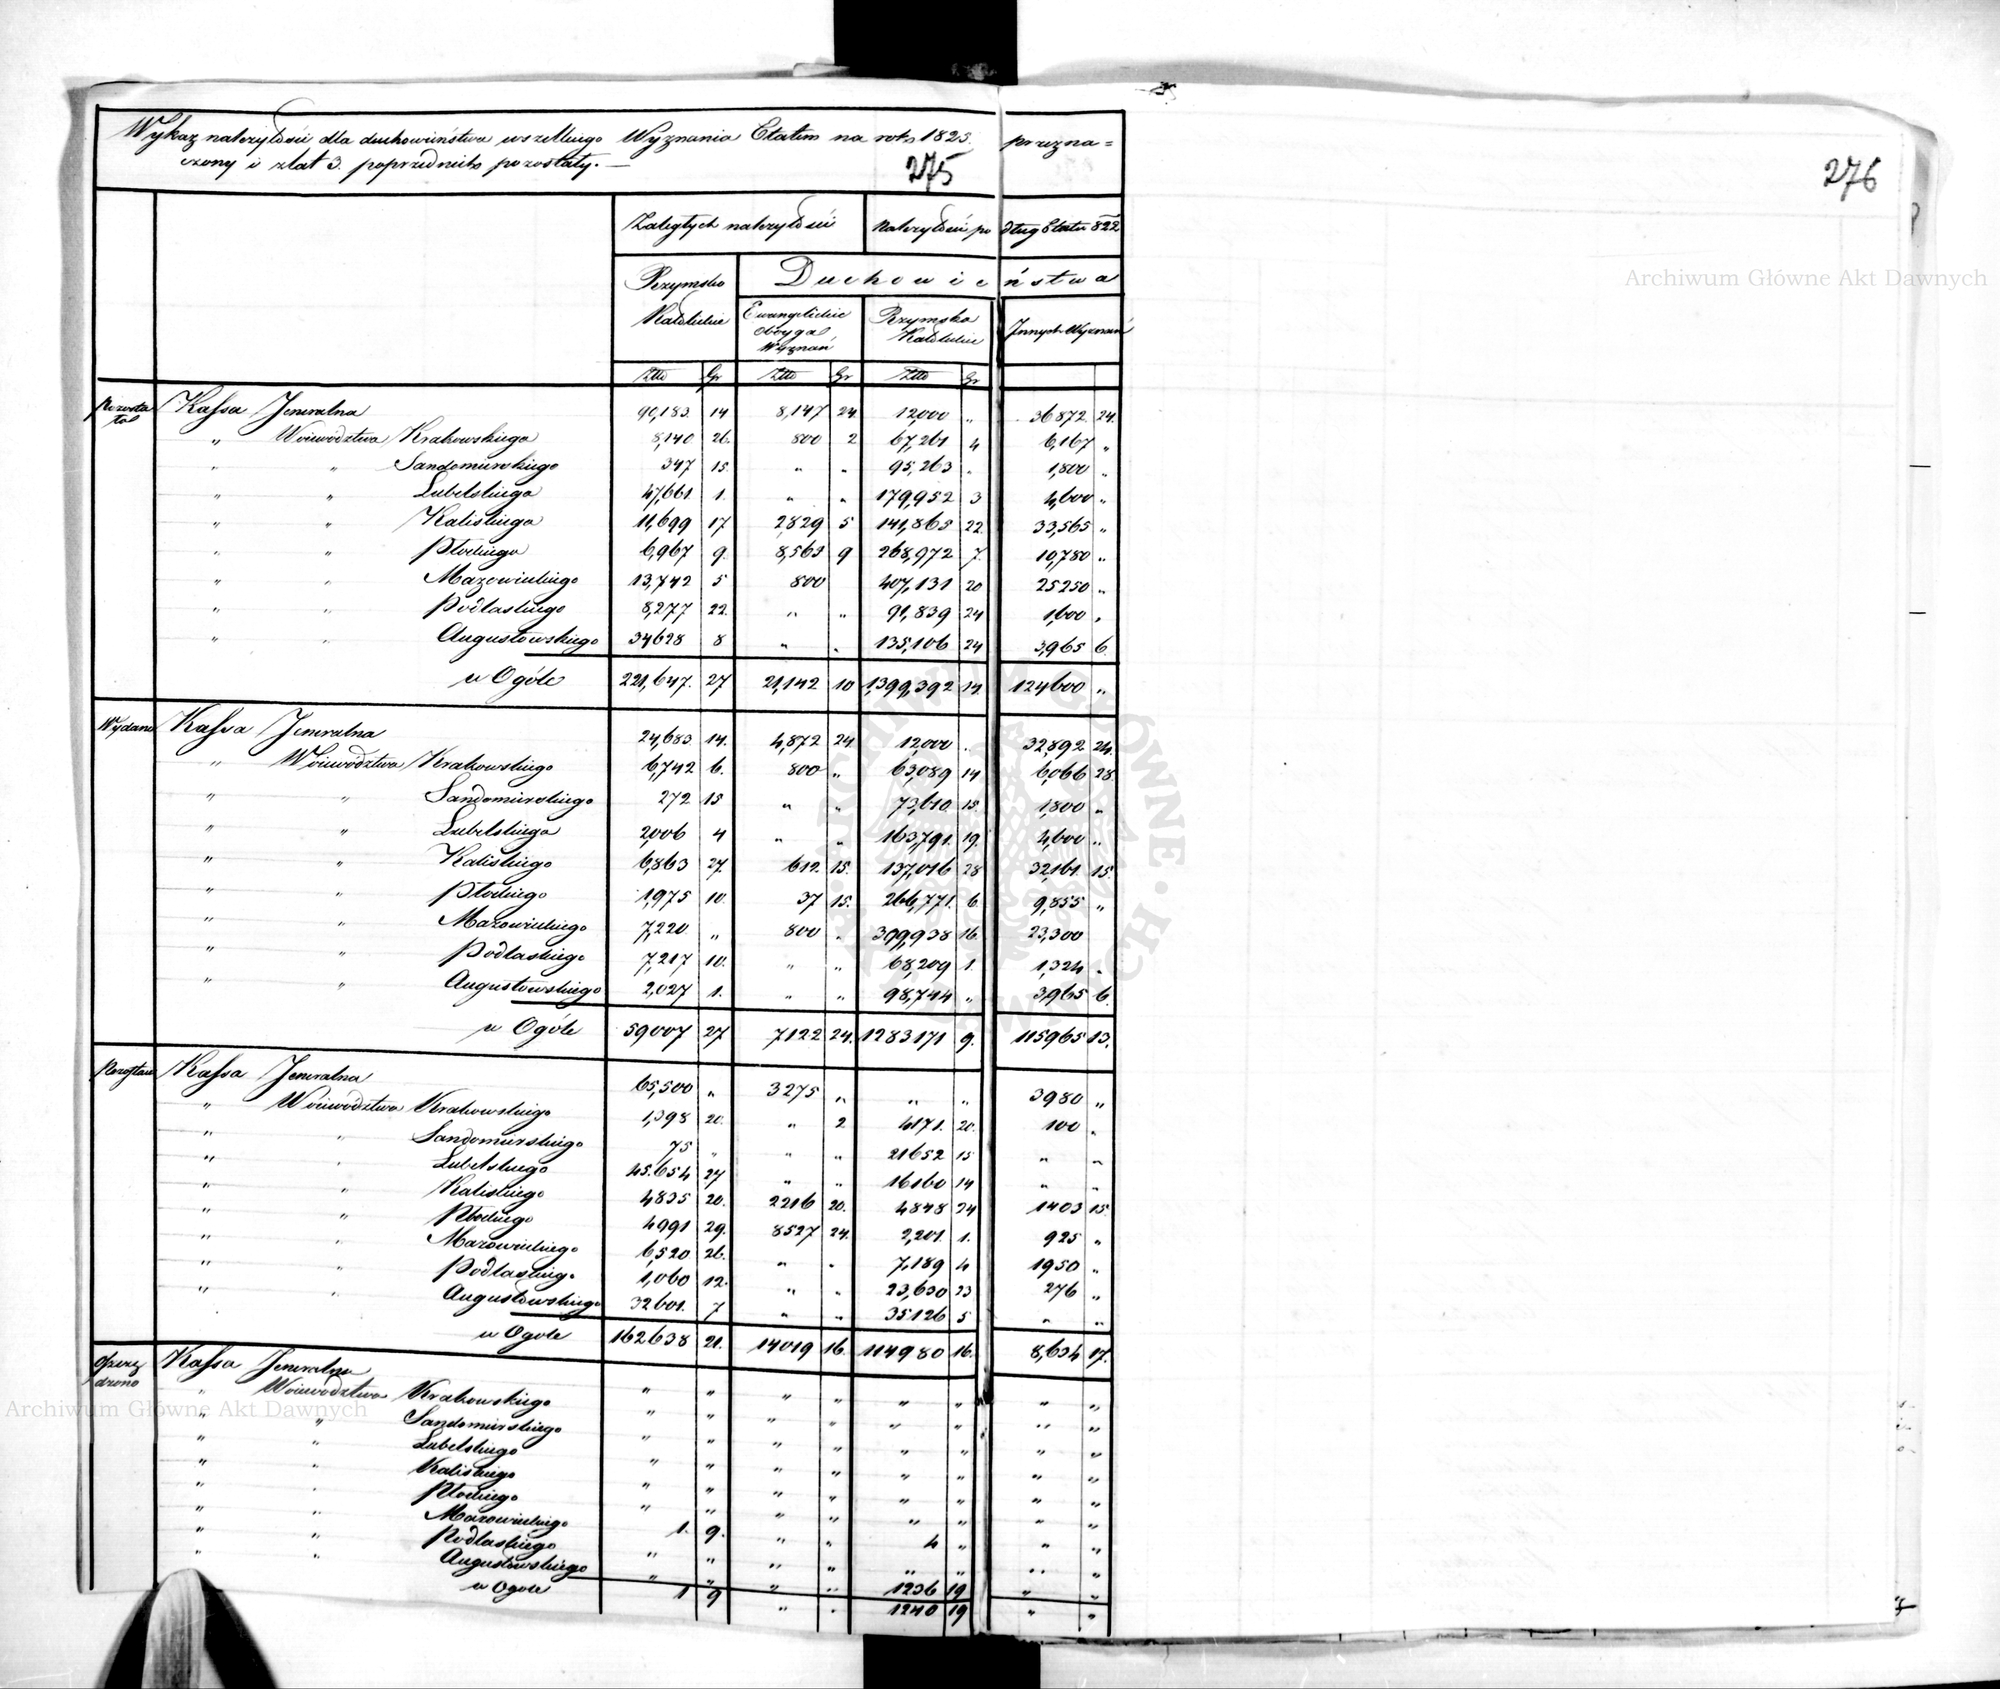 Wykaz należytości dla duchowieństwa wszelkiego Wyznania Etatem na rok 1823. przezna=
czony i z lat 3. poprzednich pozostały.—
275
276
Zaległych należytości | Należytości po dług Etatu 822
Rzymsko Katolickie | Duchowieństwa
Ewangelickie Oboyga Wyznań | Rzymsko Katolickie | Innych Wyznań
Złto | Gr | Złto | Gr | Złto | Gr
Kassa Jeneralna 90,183 14 8,147 24 12,000 " 36872 24.
" Woiewództwa Krakowskiego 8,140 26. 800 2 67,261 4 6,167 "
" " Sandomirskiego 347 15 " " 95,263 " 1,800 "
" " Lubelskiego 47,661. 1. " " 179,952 3 4,600 "
" " Kaliskiego 11,699 17 2,829 5 141,865 22 33,565 "
" " Płockiego 6,967 9. 8,565 9 268,972 7. 10,780 "
" " Mazowieckiego 13,742 5 800 407,131 20 25250 "
" " Podlaskiego 8,277 22. " " 91,839 24 1,600 "
" " Augustowskiego 34628 8 " " 135,106 24 3,965 6.
w Ogóle 221,647. 27 21,142 10 1,399,392 14. 124600 "
Wydano Kassa Jeneralna 24,683 14. 4,872 24 12,000 " 32,892 24.
" Woiewództwa Krakowskiego 6,742 6. 800 " 63,089 14 6,066 28.
" " Sandomirskiego 272 15 " " 73,610 15. 1,800 "
" " Lubelskiego 2,006 4 " " 163,791. 19. 4,600 "
" " Kaliskiego 6,863 27. 612 15. 137,016 28 32,161. 15.
" " Płockiego 1,975 10. 37 15. 266,771. 6 9,855 "
" " Mazowieckiego 7,220 " 800 " 399,938 16. 23,300
" " Podlaskiego 7,217 10. " " 68,209 1. 1,324 "
" " Augustowskiego 2,027 1. " " 98,744 " 3,965 6.
w Ogóle 59007 27 7122 24. 1283171 9. 115965 13.
Kassa Jeneralna 65,500 " 3275 " " " 3980 "
" Woiewództwa Krakowskiego 1,398 20. " 2 4171. 20. 100 "
" " Sandomirskiego 75 " " " 21652 15 " "
" " Lubelskiego 45.654 27 " " 16160 14 " "
" " Kaliskiego 4835 20. 2216 20. 4848 24 1403 15.
" " Płockiego 4991 29. 8527 24. 2,201. 1. 925 "
" " Mazowieckiego 6,520 26. " " 7,189 4 1950 "
" " Podlaskiego 1,060 12. " " 23,630 23 276 "
" " Augustowskiego 32601. 7 " " 35126 5 " "
w Ogole 162638 21. 14019 16. 114980 16. 8,634 17.
Kassa Jeneralna " " " " " " " "
" Woiewództwa Krakowskiego " " " " " " " "
" " Sandomirskiego " " " " " " " "
" " Lubelskiego " " " " " " " "
" " Kaliskiego " " " " " " " "
" " Płockiego " " " " " " " "
" " Mazowieckiego 1. 9. " " 4 " " "
" " Podlaskiego " " " " " " " "
" " Augustowskiego " " " " 1236 19 " "
w Ogole 1 9 " " 1240 19 " "
Archiwum Główne Akt Dawnych
Archiwum Główne Akt Dawnych